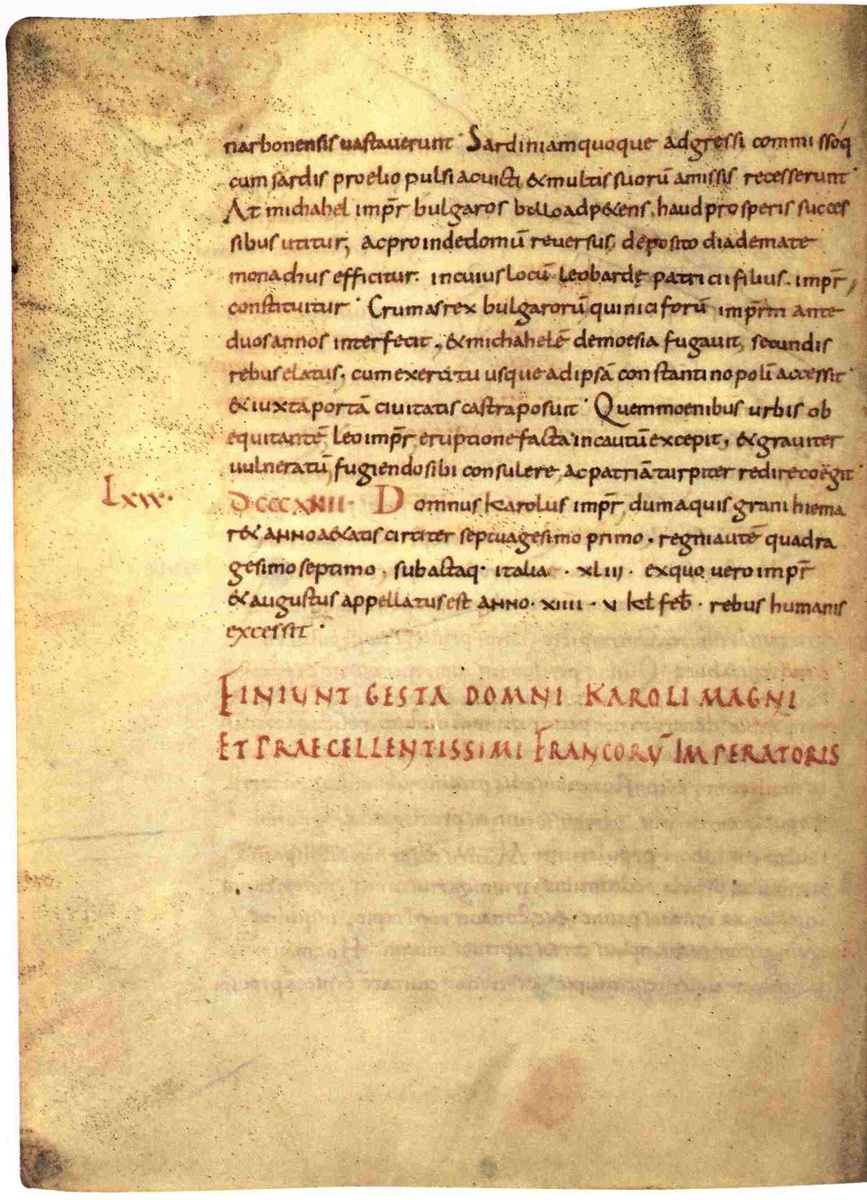 narbonensis vastaverunt· Sardiniam quoque adgressi commissoq
cum sardis proelio pulsi ac victi & multis suorū amissis recesserunt·
At michahel impr̄ bulgaros bello adp&ens, haud prosperis succes
sibus utitur, ac proinde domū reversus, deposito diademate
monachus efficitur. in cuius locū leo bardę patricii filius. impr̄,
constituitur· Crumas rex bulgarorū qui niciforū impr̄m ante
duos annos interfecit, & michahelē de moesia fugavit, secundis
rebus elatus. cum exercitu usque ad ipsā constantinopolī accessit·
& iuxta portā civitatis castra posuit· Quem moenibus urbis ob
equitantē leo impr̄ eruptione facta incautū excepit, & graviter
vulneratū, fugiendo sibi consulere, ac patriā turpiter redire coegit·
Lxvv.
DCCCXIIII· Domnus karolus impr̄ dum aquisgrani hiema
r& anno a&atis circiter septuagesimo primo· regni autē quadra
gesimo septimo, subactaq· italia · xliii· ex quo vero impr̄
& augustus appellatus est anno· xiiii· v kl feb· rebus humanis
excessit·
FINIUNT GESTA DOMNI KAROLI MAGNI
ET PRAECELLENTISSIMI FRANCORŪ IMPERATORIS